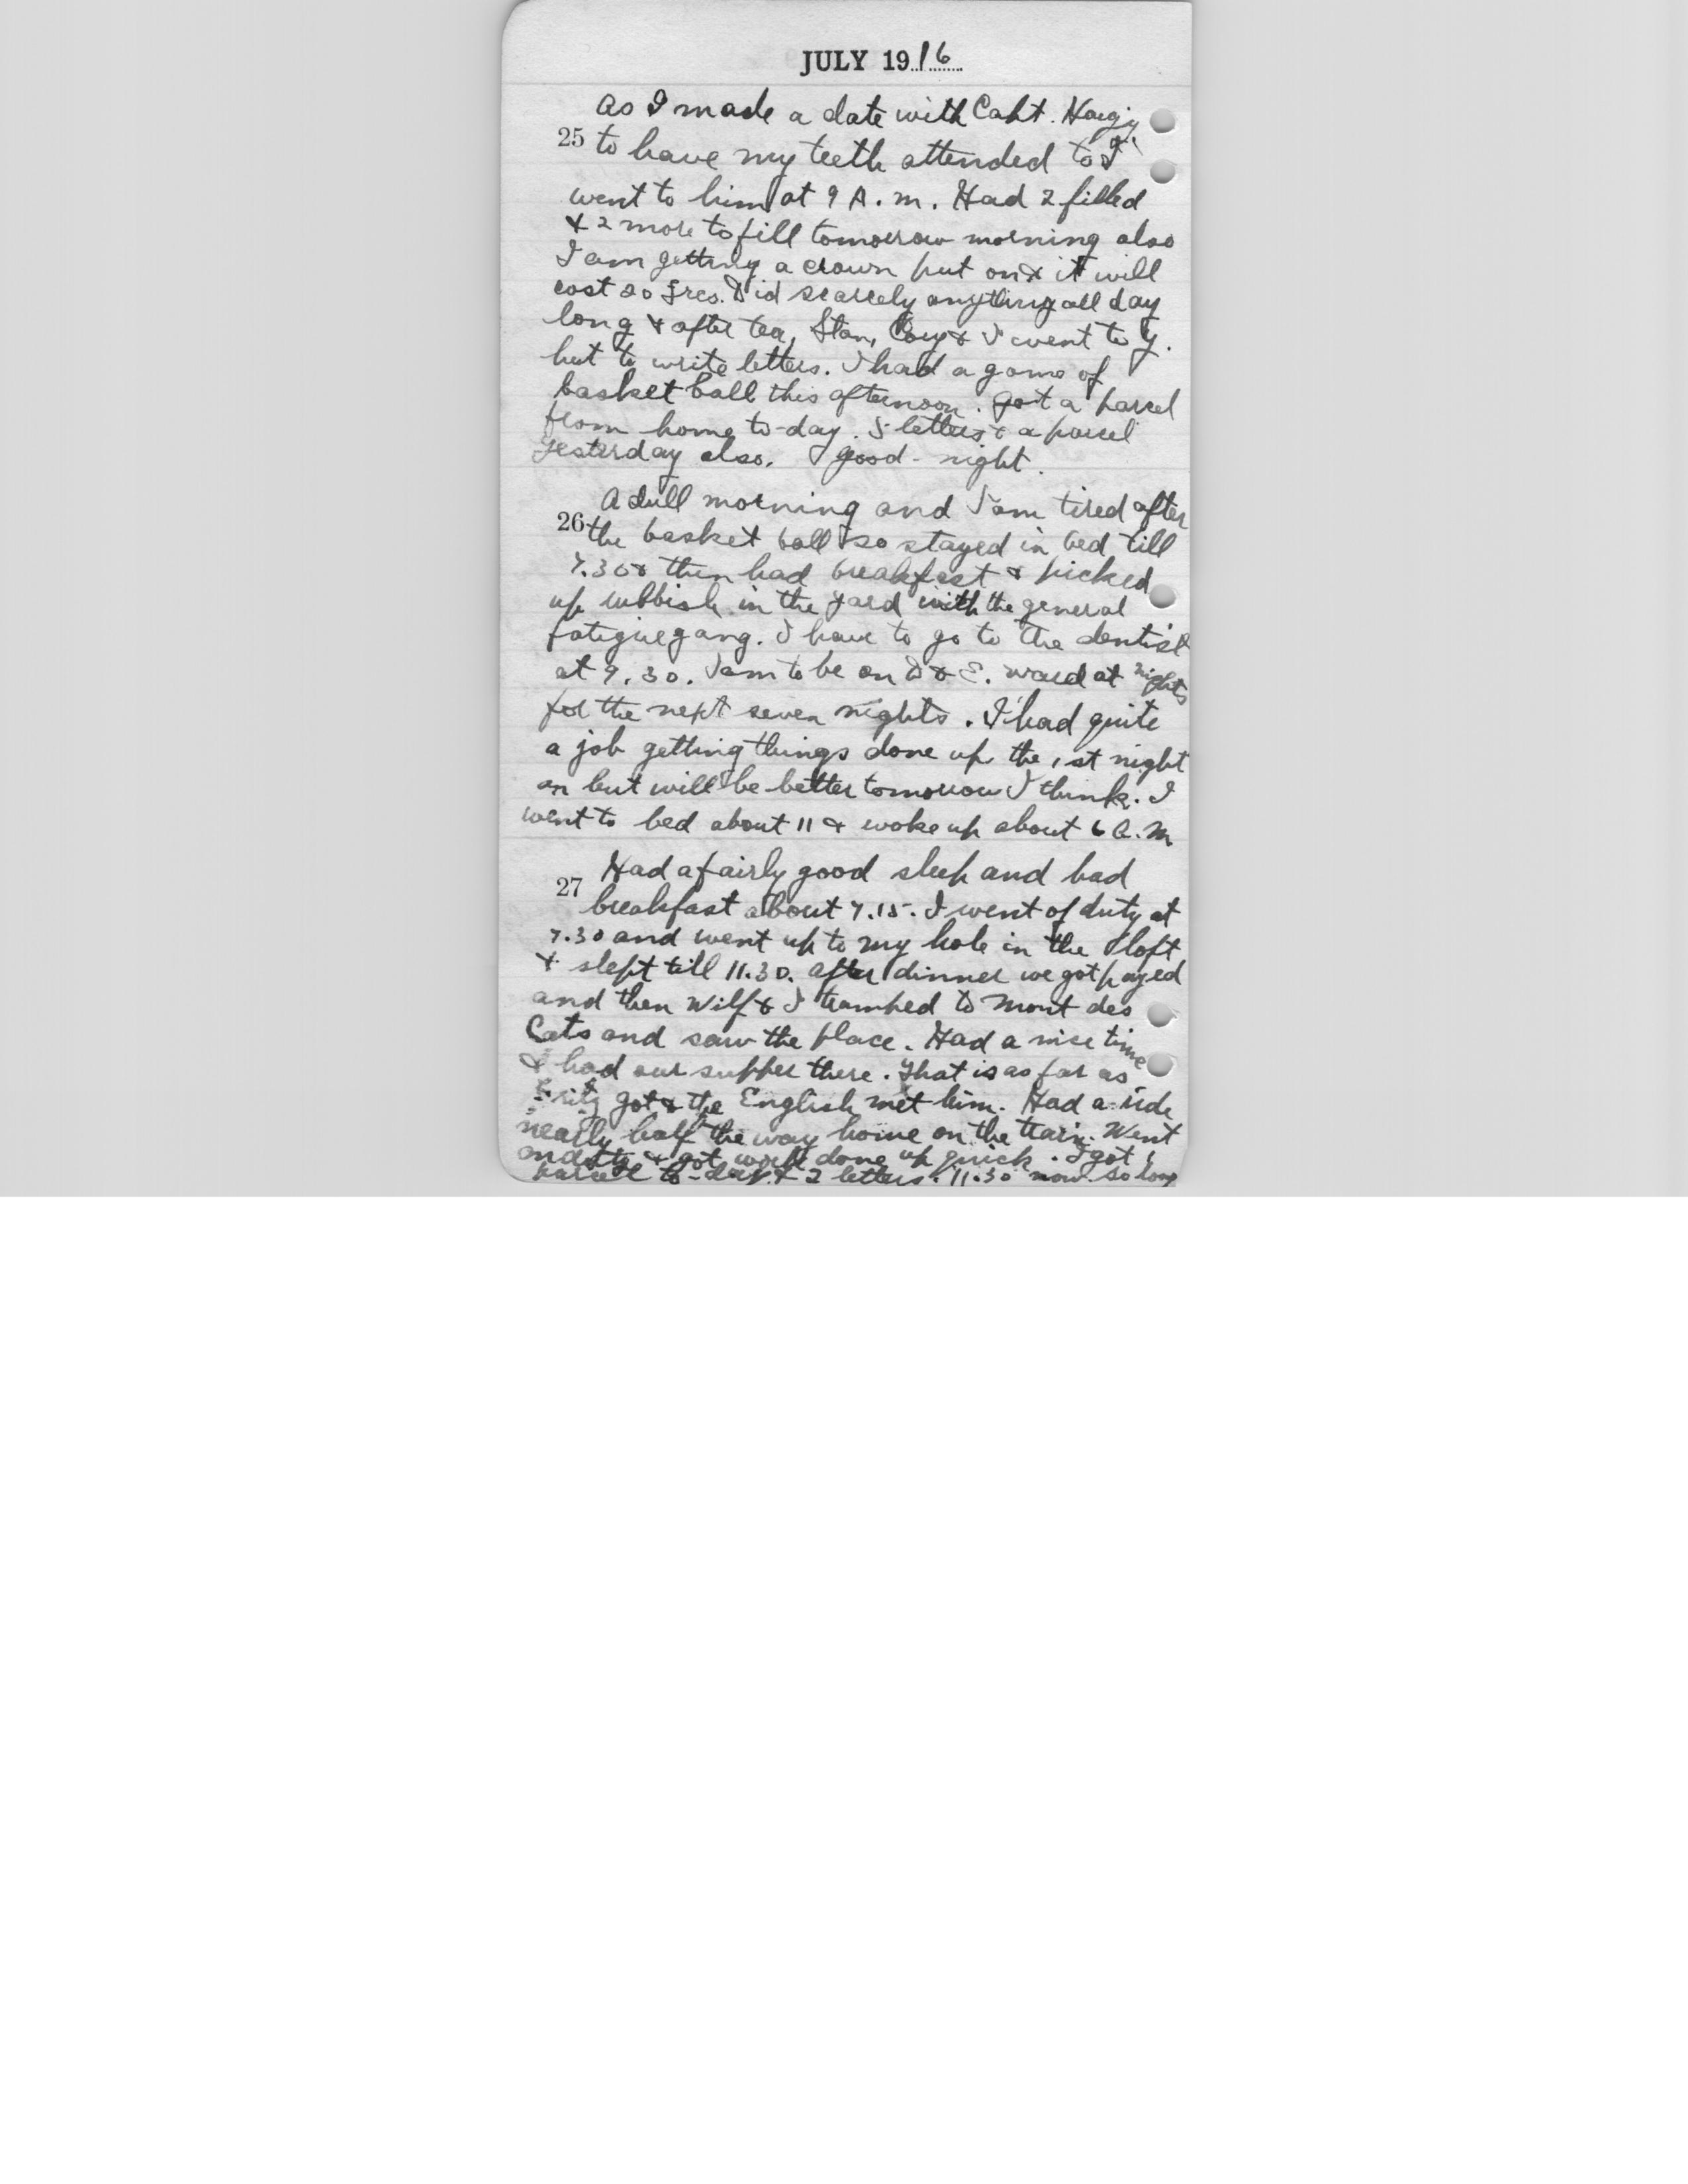 JULY 1916
As I made a date with Capt.
25 to have my teeth attended to I
went to him at 9 A.m. Had 2 filled
& 2 more to fill tomorrow morning also
I am getting a crown put on & it will
cost 20 frcs. Did scarcely anything all day
long & after tea, Stan, & I went to Y.
hut to write letters. I had a game of
basket ball this afternoon. got a parcel
from home to-day. 5 letters & a parcel
yesterday also. good-night.
A dull morning and I am tired after
26 the basket ball so stayed in bed till
7.30 & then had breakfast & picked
up rubbish in the yard with the general
fatigue gang. I have to go to the dentist
at 9.30. I am to be on D & E. ward at nights
for the next seven nights. I had quite
a job getting things done up the 1st night
on but will be better tomorrow I think. I
went to bed about 11 & woke up about 6 a.m
Had a fairly good sleep and had
27 breakfast about 7.15. I went of duty at
7.30 and went up to my hole in the loft
& slept till 11.30. after dinner we got payed
and then Wilf & I tramped to Mont des
Cats and saw the place. Had a nice time
& had our supper there. That is as far as
Fritz got & the English met him. Had a ride
nearly half the way home on the train. Went
on duty & got work done up quick. I got 1
parcel to-day & 2 letters. 11.30 now so long